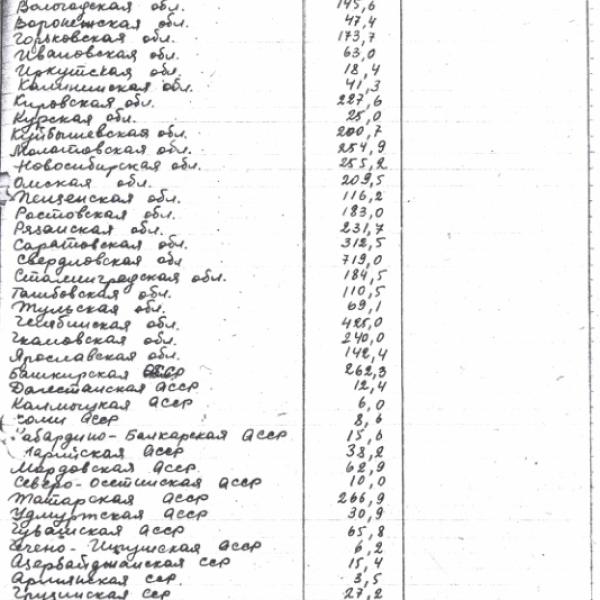 Вологодская обл. 145,6
Воронежская обл. 47,4
Горьковская обл. 173,7
Ивановская обл. 63,0
Иркутская обл. 18,4
Калининская обл. 41,3
Кировская обл. 227,6
Курская обл. 25,0
Куйбышевская обл. 200,7
Молотовская обл. 254,9
Новосибирская обл. 255,2
Омская обл. 209,5
Пензенская обл. 116,2
Ростовская обл. 183,0
Рязанская обл. 231,7
Саратовская обл. 312,5
Свердловская обл 719,0
Сталинградская обл. 184,5
Тамбовская обл. 110,5
Тульская обл. 69,1
Челябинская обл. 425,0
Чкаловская обл. 240,0
Ярославская обл. 142,4
Башкирская АССР 262,3
Дагестанская АССР 12,4
Калмыцкая АССР 6,0
Коми АССР 8,6
абардино-Балкарская АССР 15,6
арийская АССР 38,2
Мордовская АССР 62,9
Северо-Осетинская АССР 10,0
Татарская АССР 266,9
Удмуртская АССР 30,9
Чувашская АССР 65,8
ечено-Ингушская АССР 6,2
Азербайджанская ССР 15,4
Армянская ССР 3,5
Грузинская ССР 27,2